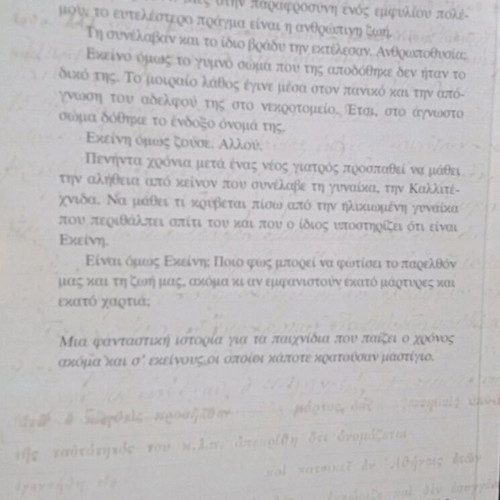 στην παραφροσύνη ενός εμφυλίου πολέ-
μου, το ευτελέστερο πράγμα είναι η ανθρώπινη ζωή.
Τη συνέλαβαν και το ίδιο βράδυ την εκτέλεσαν. Ανθρωποθυσία;
Εκείνο όμως το γυμνό σώμα που της αποδόθηκε δεν ήταν το
δικό της. Το μοιραίο λάθος έγινε μέσα στον πανικό και την από-
γνωση του αδελφού της στο νεκροτομείο. Έτσι, στο άγνωστο
σώμα δόθηκε το ένδοξο όνομά της.
Εκείνη όμως ζούσε. Αλλού.
Πενήντα χρόνια μετά ένας νέος γιατρός προσπαθεί να μάθει
την αλήθεια από κείνον που συνέλαβε τη γυναίκα, την Καλλιτέ-
χνιδα. Να μάθει τι κρύβεται πίσω από την ηλικιωμένη γυναίκα
που περιθάλπει σπίτι του και που ο ίδιος υποστηρίζει ότι είναι
Εκείνη.
Είναι όμως Εκείνη; Ποιο φως μπορεί να φωτίσει το παρελθόν
μας και τη ζωή μας, ακόμα κι αν εμφανιστούν εκατό μάρτυρες και
εκατό χαρτιά;
Μια φανταστική ιστορία για τα παιχνίδια που παίζει ο χρόνος
ακόμα και σ' εκείνους οι οποίοι κάποτε κρατούσαν μαστίγιο.
του κ.λ.π. ὀνομάζεται
καὶ κατοικεῖ ἐν Ἀθήναις